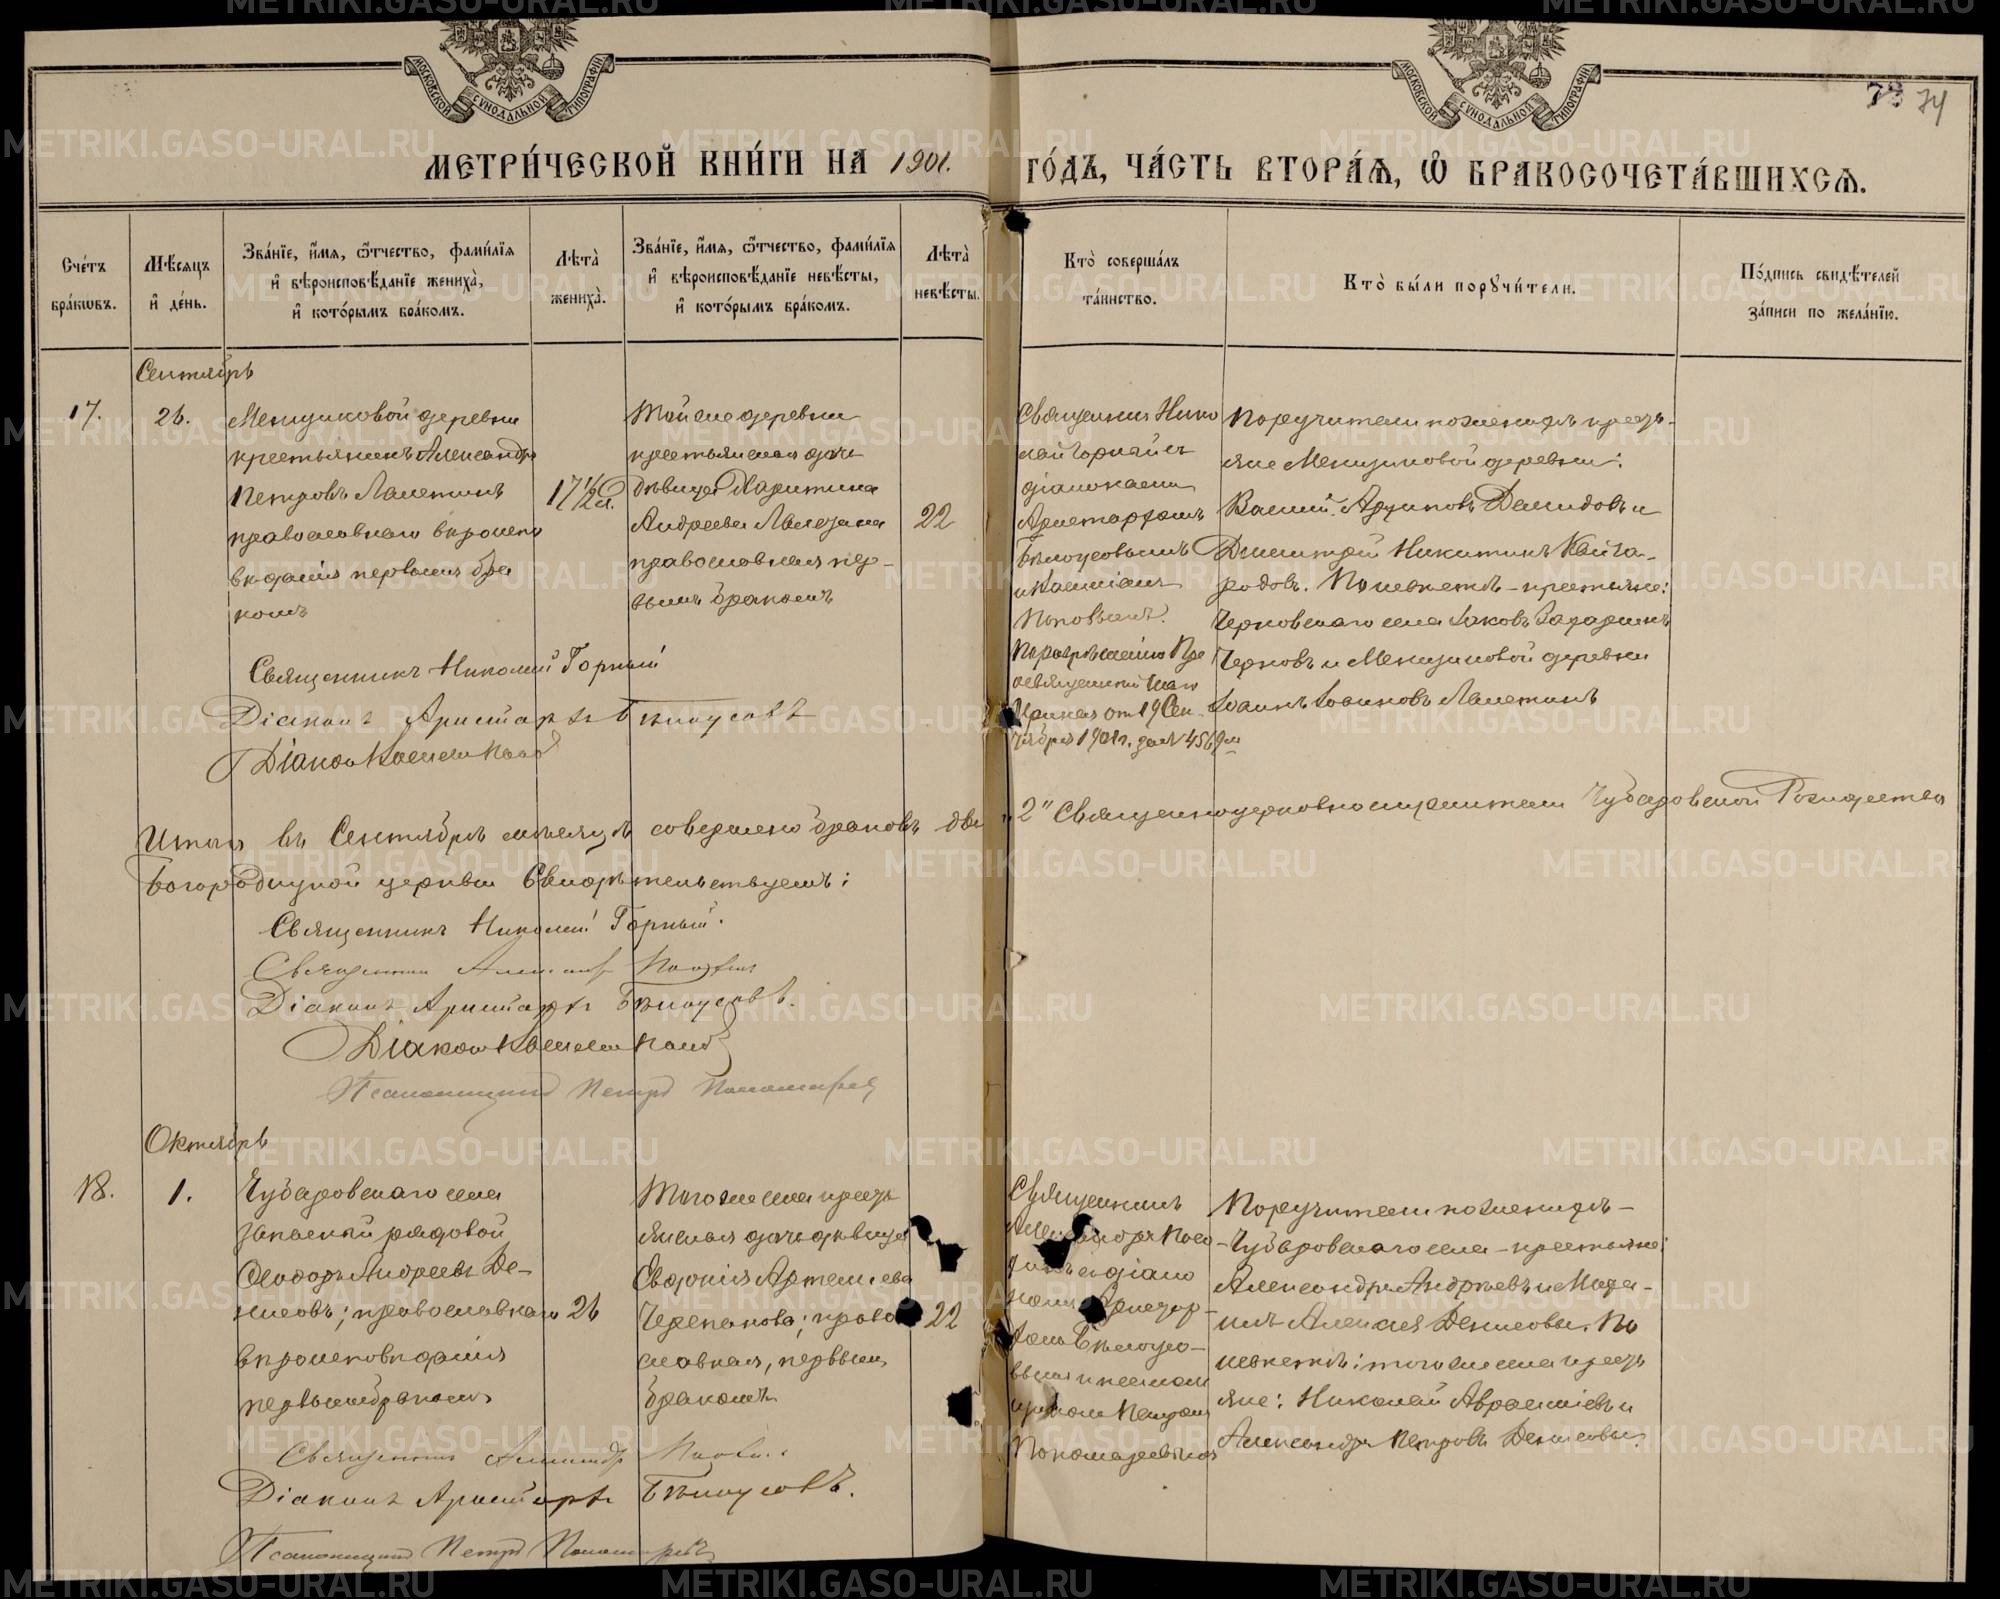 МОСКОВСКОЙ СУНОДАЛЬНОЙ ТИПОГРАФІИ
МОСКОВСКОЙ СУНОДАЛЬНОЙ ТИПОГРАФІИ
73 74
МЕТРИ́ЧЕСКОЙ КНИ́ГИ НА 1901. ГО́ДЪ, ЧА́СТЬ ВТОРА́Ѧ, Ѡ҆ БРАКОСОЧЕТА́ВШИХСѦ.
Сче́тъ бра́кѡвъ.
Мѣ́сѧцъ и҆ де́нь.
Зва́нїе, и҆́мѧ, ѻ҆́тчество, фами́лїѧ и҆ вѣроисповѣ́данїе жениха̀, и҆ кото́рымъ бра́комъ.
Лѣта̀ жениха̀.
Зва́нїе, и҆́мѧ, ѻ҆́тчество, фами́лїѧ и҆ вѣроисповѣ́данїе невѣ́сты, и҆ кото́рымъ бра́комъ.
Лѣта̀ невѣ́сты.
Кто̀ соверша́лъ та́инство.
Кто̀ бы́ли порꙋчи́тели.
По́дпись свидѣ́телей за́писи по жела́нїю.
Сентябрь
17.
26.
Менщиковой деревни
крестьянинъ Александръ
Петровъ Лапетинъ
православнаго вѣроиспо
вѣданія первымъ бра
комъ
17 1/2 л.
Той же деревни
крестьянская дочь
дѣвица Харитина
Андреева
православная пер-
вымъ бракомъ
22
Священникъ Нико
лай Горный съ
діаконами
Аристархомъ
Бѣлоусовымъ
и Кассіаномъ
Поповымъ.
По разрѣшенію Пре
освященнаго
Иринея от 19 Сен-
тября 1901 г. за № 4569м
Поручители по женихѣ крестья-
яне Менщиковой деревни:
Василій Архиповъ Давидовъ и
Димитрій Никитинъ Кайго-
родовъ. По невѣстѣ - крестьяне:
Черновскаго села Іаковъ Захаринъ
Черновъ и Менщиковой деревни
Іоаннъ Іоакимовъ Лапетинъ
Священникъ Николай Горный
Діаконъ Аристархъ Бѣлоусовъ
Діаконъ Кассіанъ Поповъ
Итого въ Сентябрѣ мѣсяцѣ совершено браковъ два "2" Священноцерковнослужители Чубаровской Рождество
Богородицкой церкви Свидѣтельствуемъ:
Священникъ Николай Горный.
Священникъ Александръ
Діаконъ Аристархъ Бѣлоусовъ.
Діаконъ Кассіанъ Поповъ
Псаломщикъ Петръ Пономаревъ
Октябрь
18.
1.
Чубаровскаго села
запасный рядовой
Ѳеодоръ Андреевъ Де-
нисовъ; православнаго
вѣроисповѣданія
первымъ бракомъ
26
Того же села кресть
янская дочь дѣвица
Евдокія Артемиева
Черепанова; право
славная, первымъ
бракомъ
22
Священникъ
Александръ
съ діако
номъ Аристар-
хомъ Бѣлоусо-
вымъ и псалом
щикомъ Петромъ
Пономаревымъ
Поручители по женихѣ -
Чубаровскаго села - крестьяне:
Александръ Андреевъ и Мака-
ръ Алексѣевъ Денисовы. По
невѣстѣ: того же села кресть
яне: Николай Авраміевъ и
Александръ Петровъ Денисовы.
Священникъ Александръ
Діаконъ Аристархъ Бѣлоусовъ.
Псаломщикъ Петръ Пономаревъ
METRIKI.GASO-URAL.RU